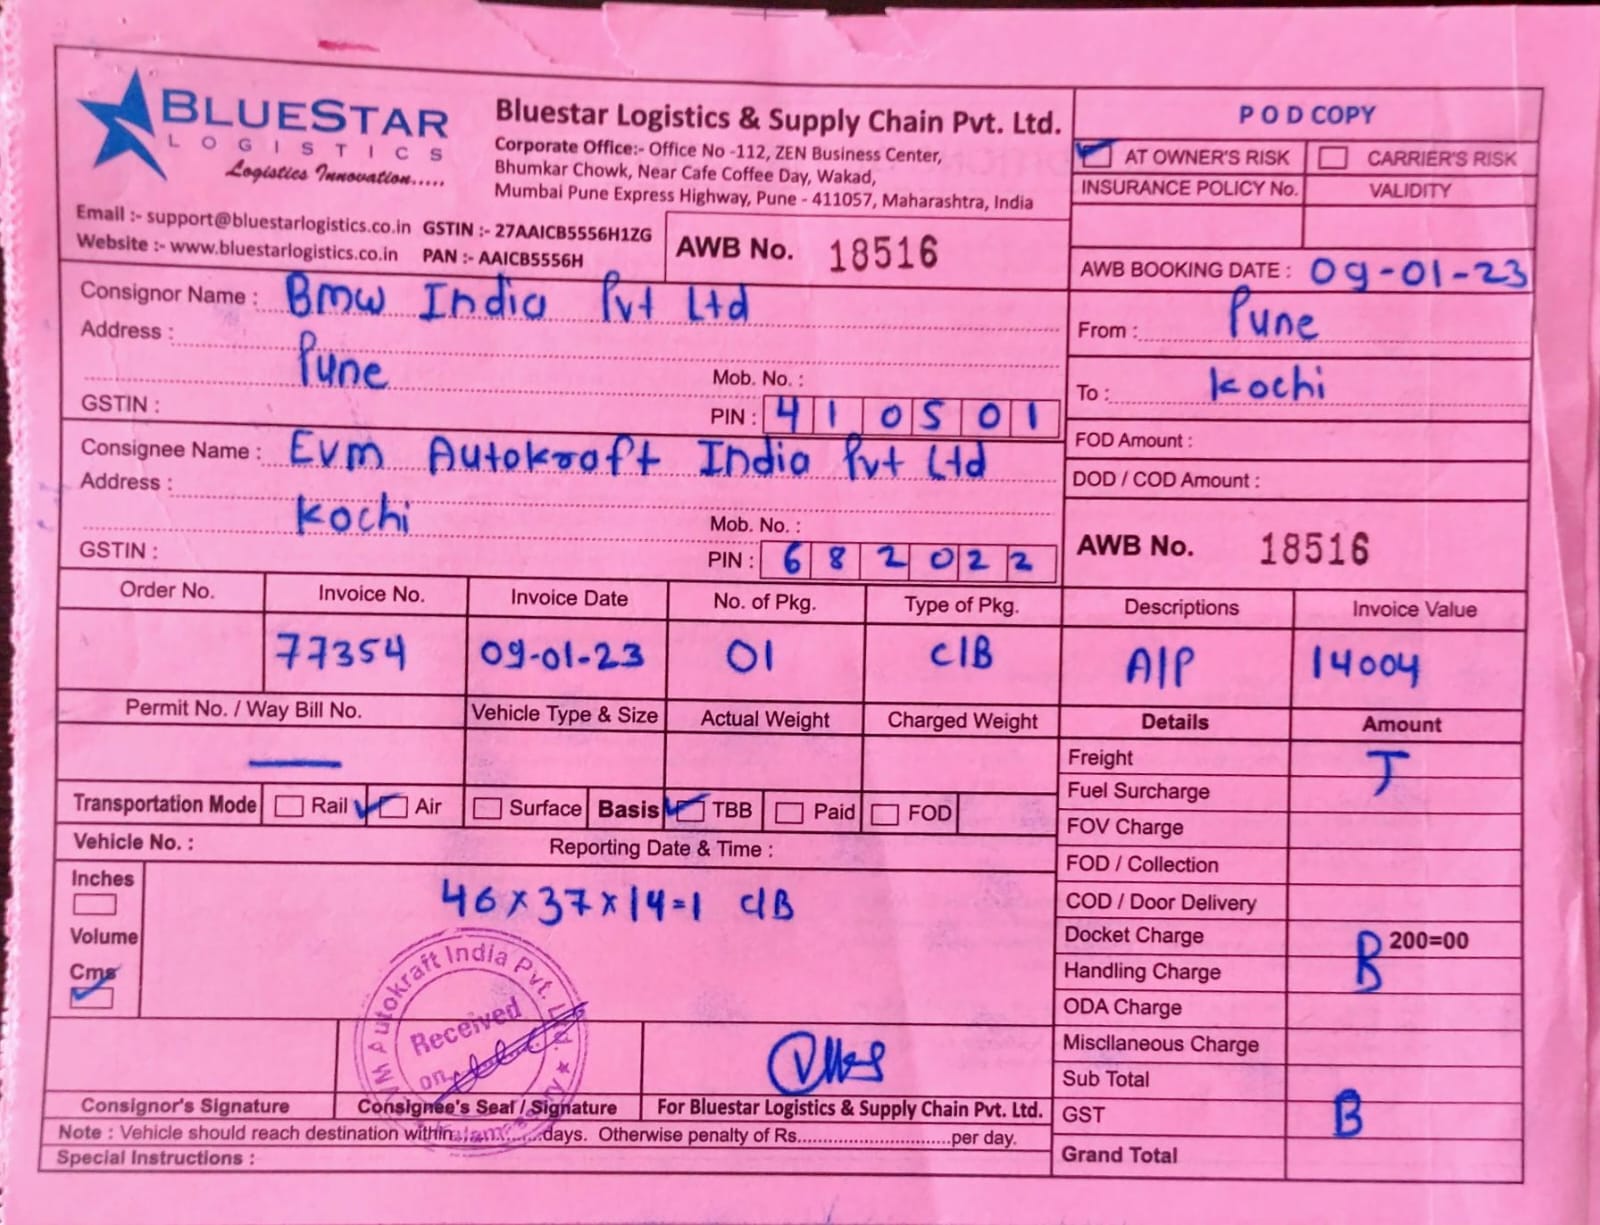 BLUESTAR
LOGISTICS
Logistics Innovation.....
Bluestar Logistics & Supply Chain Pvt. Ltd.
Corporate Office:- Office No -112, ZEN Business Center,
Bhumkar Chowk, Near Cafe Coffee Day, Wakad,
Mumbai Pune Express Highway, Pune - 411057, Maharashtra, India
Email :- support@bluestarlogistics.co.in GSTIN :- 27AAICB5556H1ZG
Website :- www.bluestarlogistics.co.in PAN :- AAICB5556H
AWB No. 18516
POD COPY
AT OWNER'S RISK CARRIER'S RISK
INSURANCE POLICY No. VALIDITY
AWB BOOKING DATE : 09-01-23
From : Pune
To : Kochi
FOD Amount :
DOD / COD Amount :
AWB No. 18516
Consignor Name : Bmw India Pvt Ltd
Address :
Pune Mob. No. :
GSTIN : PIN : 410501
Consignee Name : Evm Autokroft India Pvt Ltd
Address :
Kochi Mob. No. :
GSTIN : PIN : 682022
Order No. Invoice No. Invoice Date No. of Pkg. Type of Pkg. Descriptions Invoice Value
77354 09-01-23 01 C/B A/P 14004
Permit No. / Way Bill No. Vehicle Type & Size Actual Weight Charged Weight Details Amount
—
Transportation Mode Rail Air Surface Basis TBB Paid FOD
Vehicle No. : Reporting Date & Time :
Inches
Volume
Cms
46x37x14=1 C/B
Freight T
Fuel Surcharge
FOV Charge
FOD / Collection
COD / Door Delivery
Docket Charge 200=00
B
Handling Charge
ODA Charge
Miscllaneous Charge
Sub Total
GST B
Grand Total
Autokraft India Pvt.
Received
on
Consignor's Signature Consignee's Seal / Signature For Bluestar Logistics & Supply Chain Pvt. Ltd.
Note : Vehicle should reach destination within..............days. Otherwise penalty of Rs............................per day.
Special Instructions :